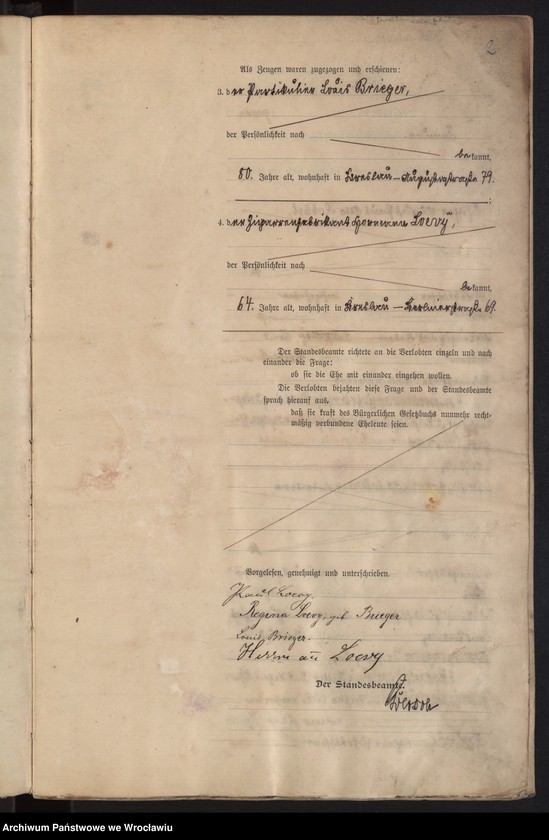 2
Als Zeugen waren zugezogen und erschienen:
3. der Partikulier Louis Brieger,
der Persönlichkeit nach
bekannt,
80. Jahre alt, wohnhaft in Breslau – Augustastraße 79.
;
4. der Zigarrenfabrikant Hermann Loevy,
der Persönlichkeit nach
bekannt,
64. Jahre alt, wohnhaft in Breslau – Berlinerstraße 69.
Der Standesbeamte richtete an die Verlobten einzeln und nach
einander die Frage:
ob sie die Ehe mit einander eingehen wollen.
Die Verlobten bejahten diese Frage und der Standesbeamte
sprach hierauf aus,
daß sie kraft des Bürgerlichen Gesetzbuchs nunmehr recht-
mäßig verbundene Eheleute seien.
Vorgelesen, genehmigt und unterschrieben.
Paul Loevy.
Regina Loevy, geb Brieger
Louis Brieger.
Hermann Loevy
Der Standesbeamte.
Archiwum Państwowe we Wrocławiu